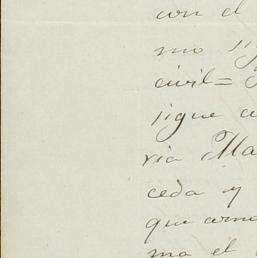 con el
mo sig
civil=
sigue c
ria Ma
ceda y
que como
ma el